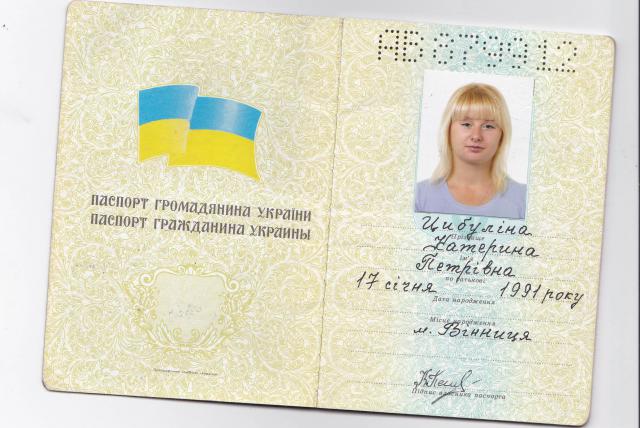 ПАСПОРТ ГРОМАДЯНИНА УКРАЇНИ
ПАСПОРТ ГРАЖДАНИНА УКРАИНЫ
АВ 879912
Цибуліна
Прізвище
Катерина
Ім'я
Петрівна
по батькові
17 січня 1991 року
Дата народження
Місце народження
м. Вінниця
Підпис власника паспорта